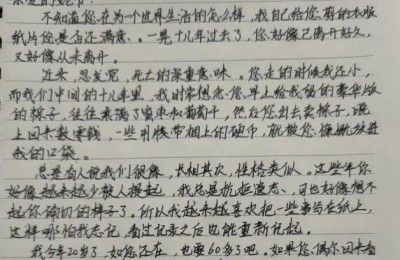 不知道您在另一个世界生活的怎么样,我自己给您剪的衣服
纸片您是否还满意、。一晃十几年过去了,您好像已离开好久,
又好像从未离开。
近来,忽发觉,死亡的深重意味。您走的时候我还小,
而我们中间的十几年里,我时常想念您早上给我留的豪华版
的粽子,往往来满了蜜枣和葡萄干,然后您出去卖粽子,晚
上回来数零钱,一些
我的口袋。
总是有人说我们很像,长相其次,性格类似。这些年你
好像越来越少被人提起,我总是抗拒遗忘,可也好像想不
起你确切的样子了。所以我越来越喜欢把一些事写在纸上,
这样哪怕我忘记,看过记录之后也能重新记起。
我今年20岁了,如您还在,也要60多了吧。如果您偶尔回来看